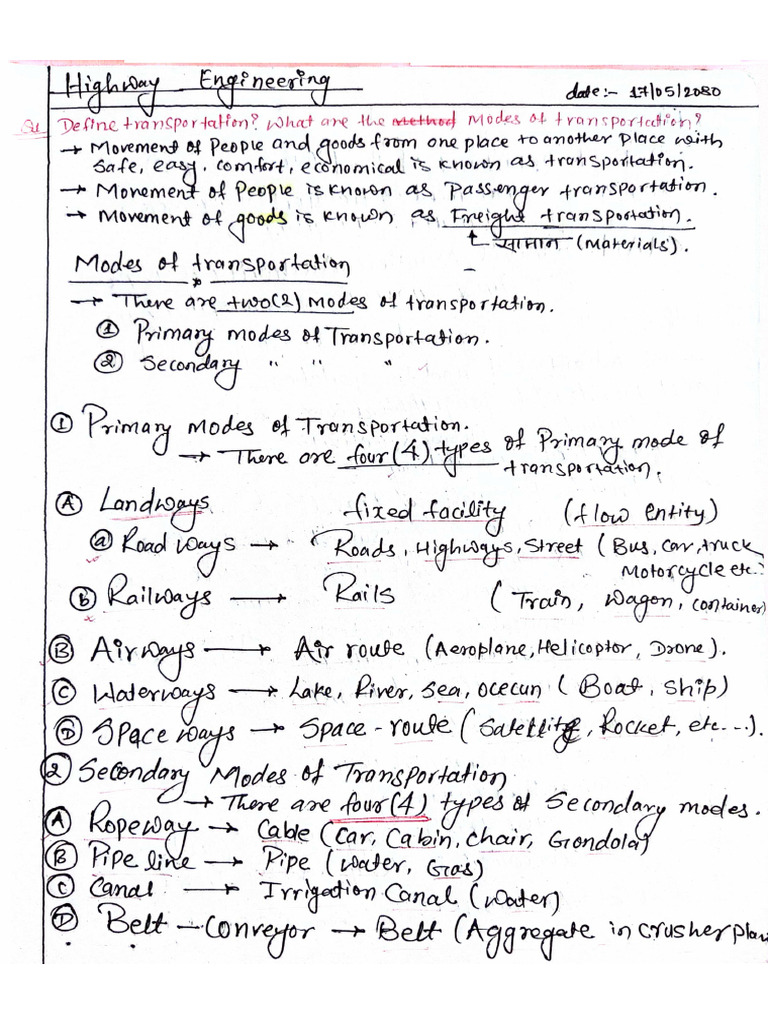 Highway Engineering date:- 17/05/2080
Define transportation? What are the method Modes of transportation?
→ Movement of People and goods from one place to another place with
safe, easy, comfort, economical is known as transportation.
→ Movement of People is known as Passenger transportation.
→ Movement of goods is known as Freight transportation.
सामान (Materials).
Modes of transportation
→ There are two(2) modes of transportation.
① Primary modes of Transportation.
② Secondary " " "
① Primary modes of Transportation.
→ There are four(4) types of Primary mode of
transportation.
Ⓐ Landways fixed facility (flow entity)
ⓐ Road ways → Roads, Highways, Street (Bus, car, truck,
Motorcycle etc.
ⓑ Railways → Rails (Train, wagon, container)
Ⓑ Airways → Air route (Aeroplane, Helicoptor, Drone).
Ⓒ Waterways → Lake, River, Sea, ocecun (Boat, Ship)
Ⓓ Space ways → Space-route (Satellite, Rocket, etc...).
② Secondary Modes of Transportation
→ There are four(4) types of Secondary modes.
Ⓐ Ropeway → Cable (Car, Cabin, chair, Gondola)
Ⓑ Pipe line → Pipe (water, Gas)
Ⓒ Canal → Irrigation Canal (water)
Ⓓ Belt - Conveyor → Belt (Aggregate in crusher plan